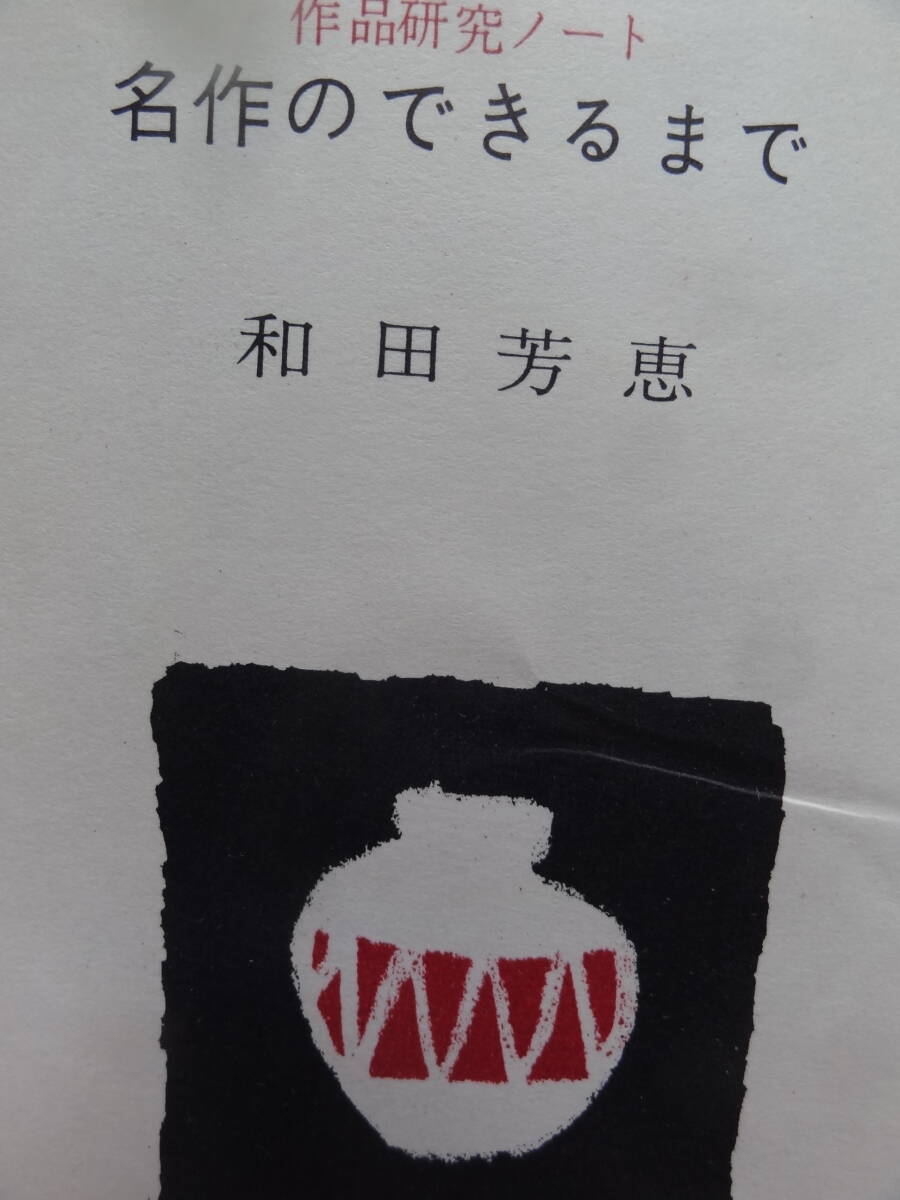 作品研究ノート
名作のできるまで
和田芳恵